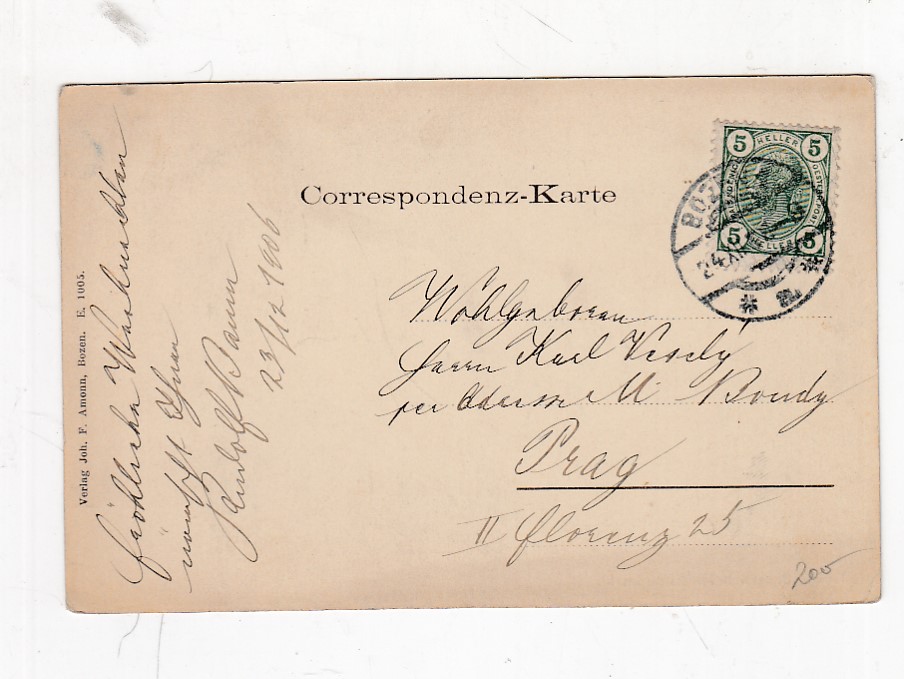 Correspondenz-Karte
5 HELLER 5
5 HELLER 5
BOZ
24 XII
Wohlgeboren
Herrn Karl Veselý
per Adresse M. Bondy
Prag
II Florenz 25
200
Fröhliche Weihnachten
wünscht Ihnen
Rudolf
23/12 1906
Verlag Joh. F. Amonn, Bozen. E. 1005.